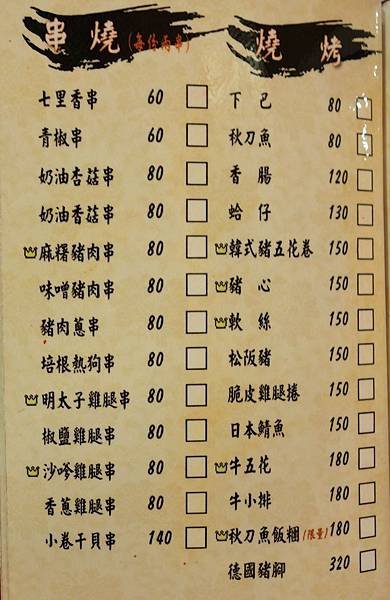 串燒(每份兩串)
七里香串 60
青椒串 60
奶油杏菇串 80
奶油香菇串 80
麻糬豬肉串 80
味噌豬肉串 80
豬肉蔥串 80
培根熱狗串 80
明太子雞腿串 80
椒鹽雞腿串 80
沙嗲雞腿串 80
香蔥雞腿串 80
小卷干貝串 140
燒烤
下巴 80
秋刀魚 80
香腸 120
蛤仔 130
韓式豬五花卷 150
豬心 150
軟絲 150
松阪豬 150
脆皮雞腿捲 150
日本鯖魚 150
牛五花 180
牛小排 180
秋刀魚飯糰(限量) 180
德國豬腳 320